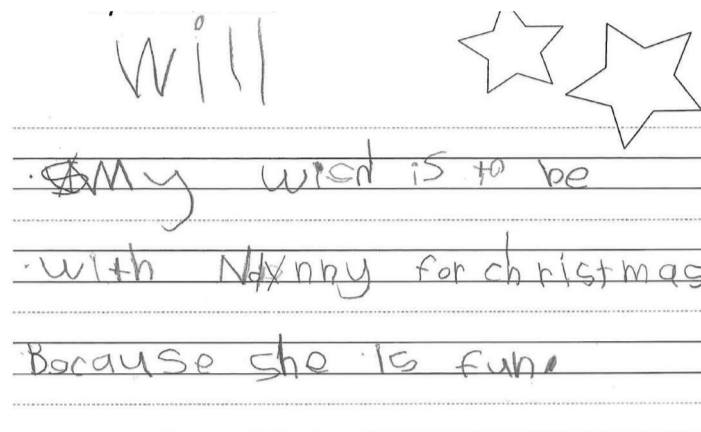 will
My wich is to be
with Nanny for christmas
Bacause she is fun.